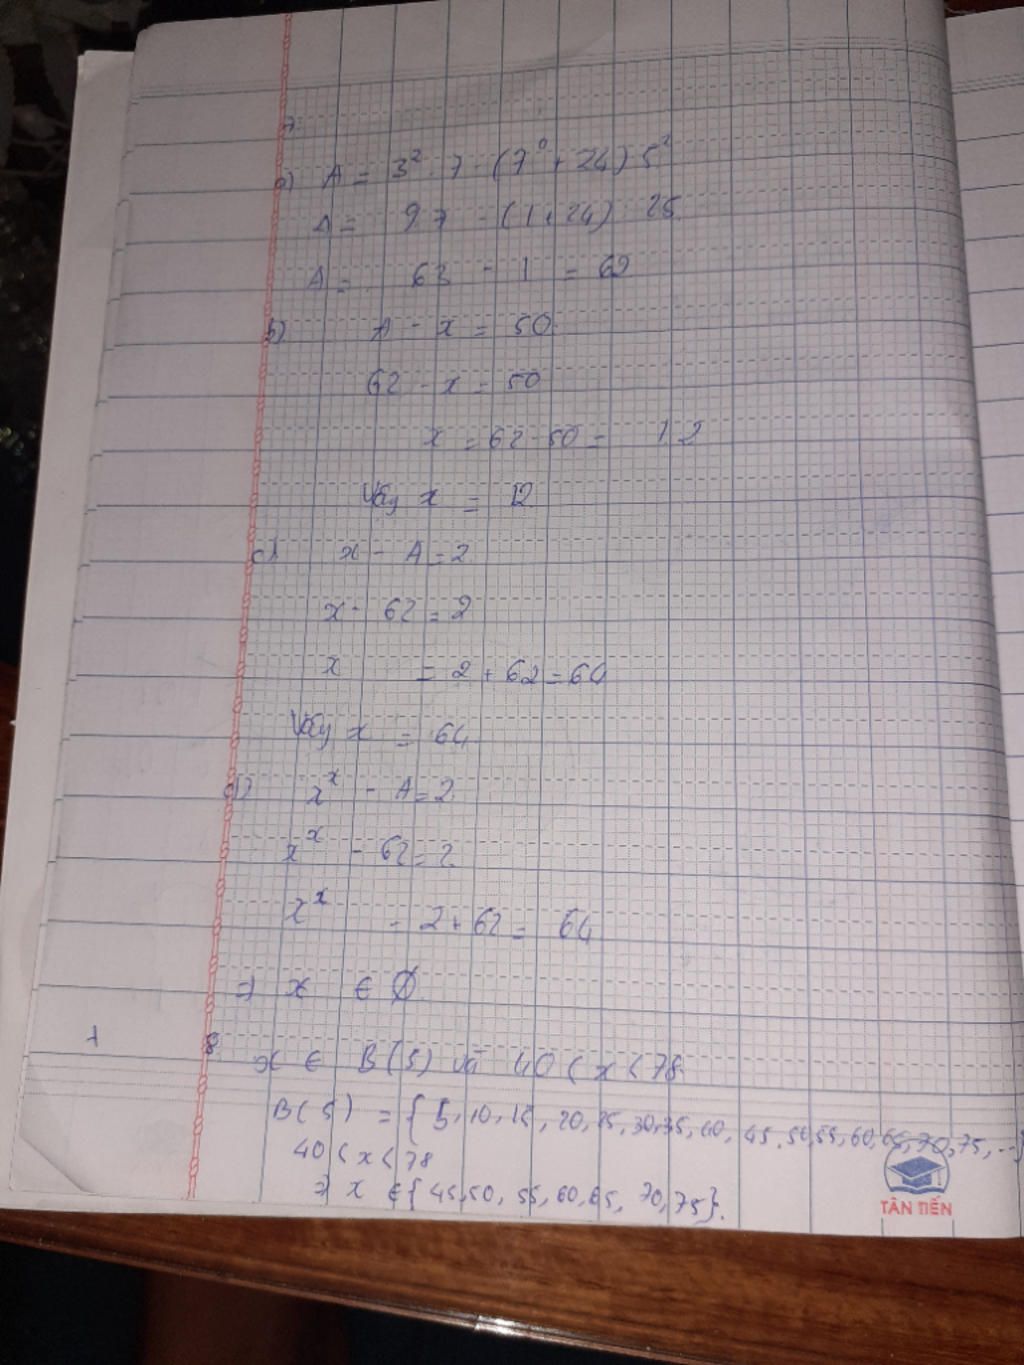 7.
a) A = 3² . 7 - (7⁰ + 24) : 5²
A = 9.7 - (1 + 24) : 25
A = 63 - 1 = 62
b) A - x = 50
62 - x = 50
x = 62 - 50 = 12
Vậy x = 12
c) x - A = 2
x - 62 = 2
x = 2 + 62 = 64
Vậy x = 64
d) x^x - A = 2
x^x - 62 = 2
x^x = 2 + 62 = 64
=> x ∈ ∅
8 x ∈ B(5) và 40 < x < 78
B(5) = {5, 10, 15, 20, 25, 30, 35, 40, 45, 50, 55, 60, 65, 70, 75, ...}
40 < x < 78
=> x ∈ {45, 50, 55, 60, 65, 70, 75}.
TÂN TIẾN